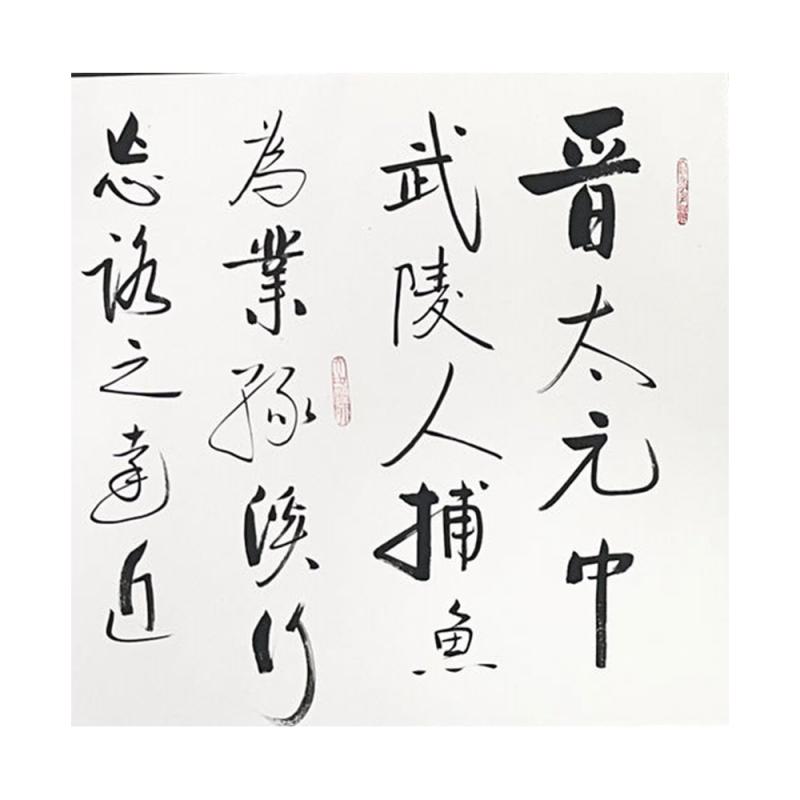 晋太元中
武陵人捕魚
為業緣溪行
忘路之遠近